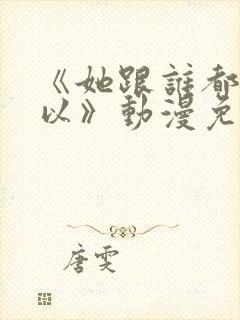 《她跟誰都
以》動漫免
唐雯